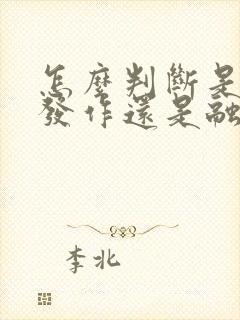 怎麼判斷是
發作還是融
李北